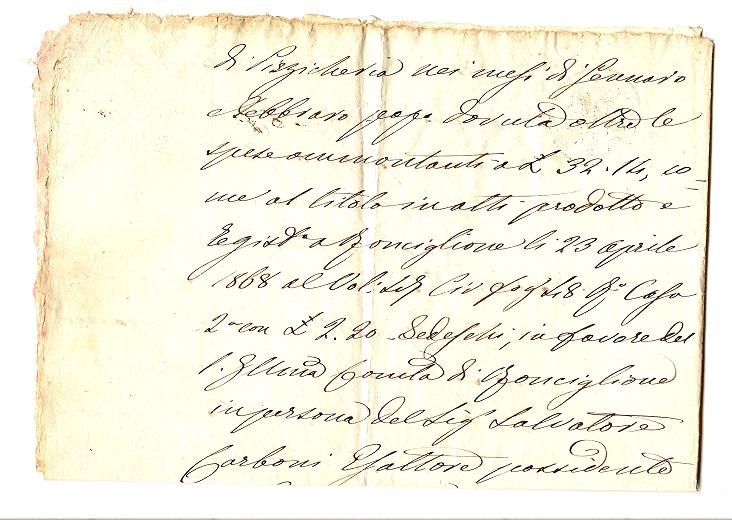 di Pizzicheria nei mesi di Gennaro
e Febbraro pop.o dovuta oltre le
spese ammontanti a £ 32.14, co=
me al titolo in atti prodotto e
Regist.a a Ronciglione li 23 Aprile
1868 al Vol: Civ fog: 48 Casa
2.a con £ 2.20 Tedeschi, in favore del
Comità di Ronciglione
in persona del Sig Salvatore
Carboni Esattore possidente